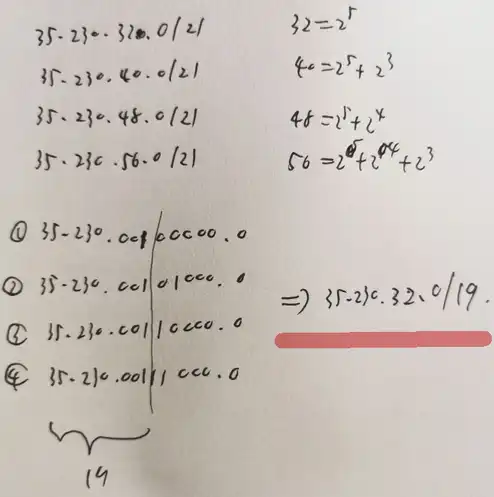 35.230.32.0/21
32=2⁵
35.230.40.0/21
40=2⁵+2³
35.230.48.0/21
48=2⁵+2⁴
35.230.56.0/21
56=2⁵+2⁴+2³
① 35.230.001|00000.0
② 35.230.001|01000.0
③ 35.230.001|10000.0
④ 35.230.001|11000.0
⇒ 35.230.32.0/19.
19